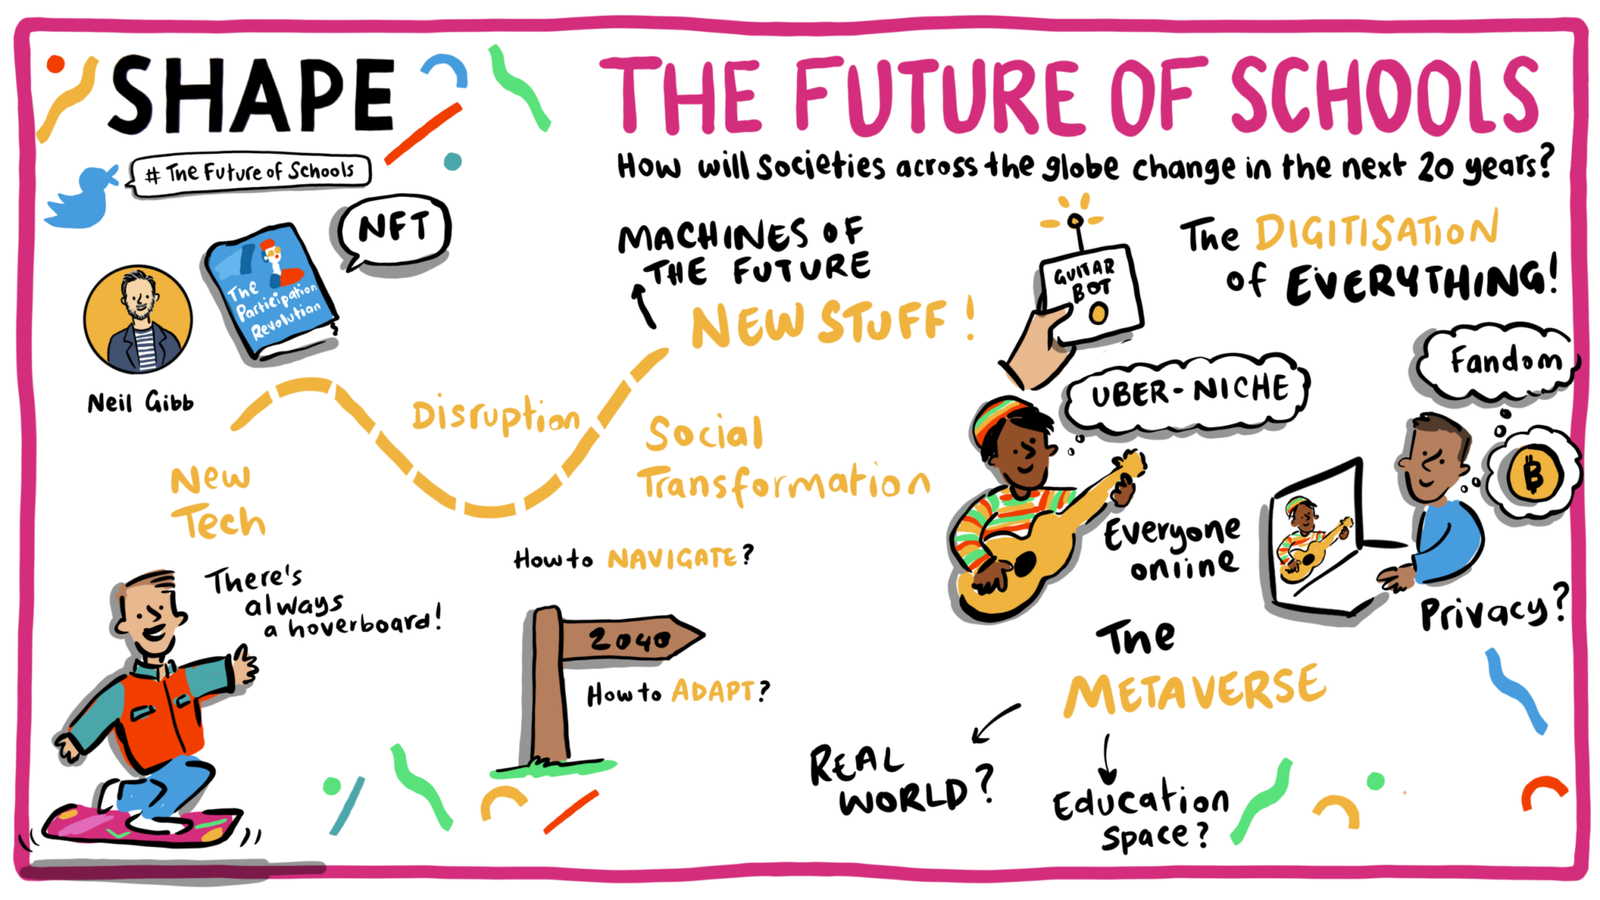 SHAPE
# The Future of Schools
THE FUTURE OF SCHOOLS
How will societies across the globe change in the next 20 years?
NFT
The
Participation
Revolution
Neil Gibb
MACHINES OF
THE FUTURE
NEW STUFF!
GUITAR
BOT
The DIGITISATION
of EVERYTHING!
UBER-NICHE
Fandom
₿
New
Tech
Disruption
Social
Transformation
Everyone
online
Privacy?
How to NAVIGATE?
2040
How to ADAPT?
There's
always
a hoverboard!
The
METAVERSE
REAL
WORLD?
Education
Space?